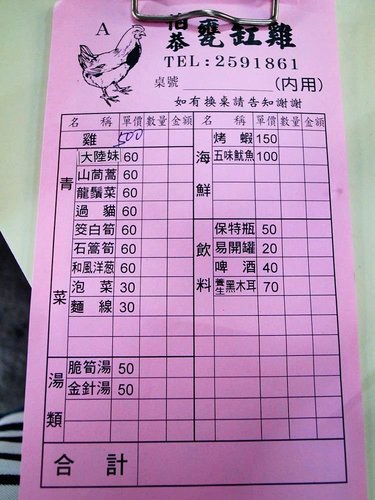 A
伯恭甕缸雞
TEL：2591861
桌號　　　(內用)
如有換桌請告知謝謝
名稱 單價 數量 金額 名稱 單價 數量 金額
雞 500
青菜
大陸妹 60
山茼蒿 60
龍鬚菜 60
過貓 60
筊白筍 60
石篙筍 60
和風洋葱 60
泡菜 30
麵線 30
湯類
脆筍湯 50
金針湯 50
海鮮
烤蝦 150
五味魷魚 100
飲料
保特瓶 50
易開罐 20
啤酒 40
養生黑木耳 70
合計